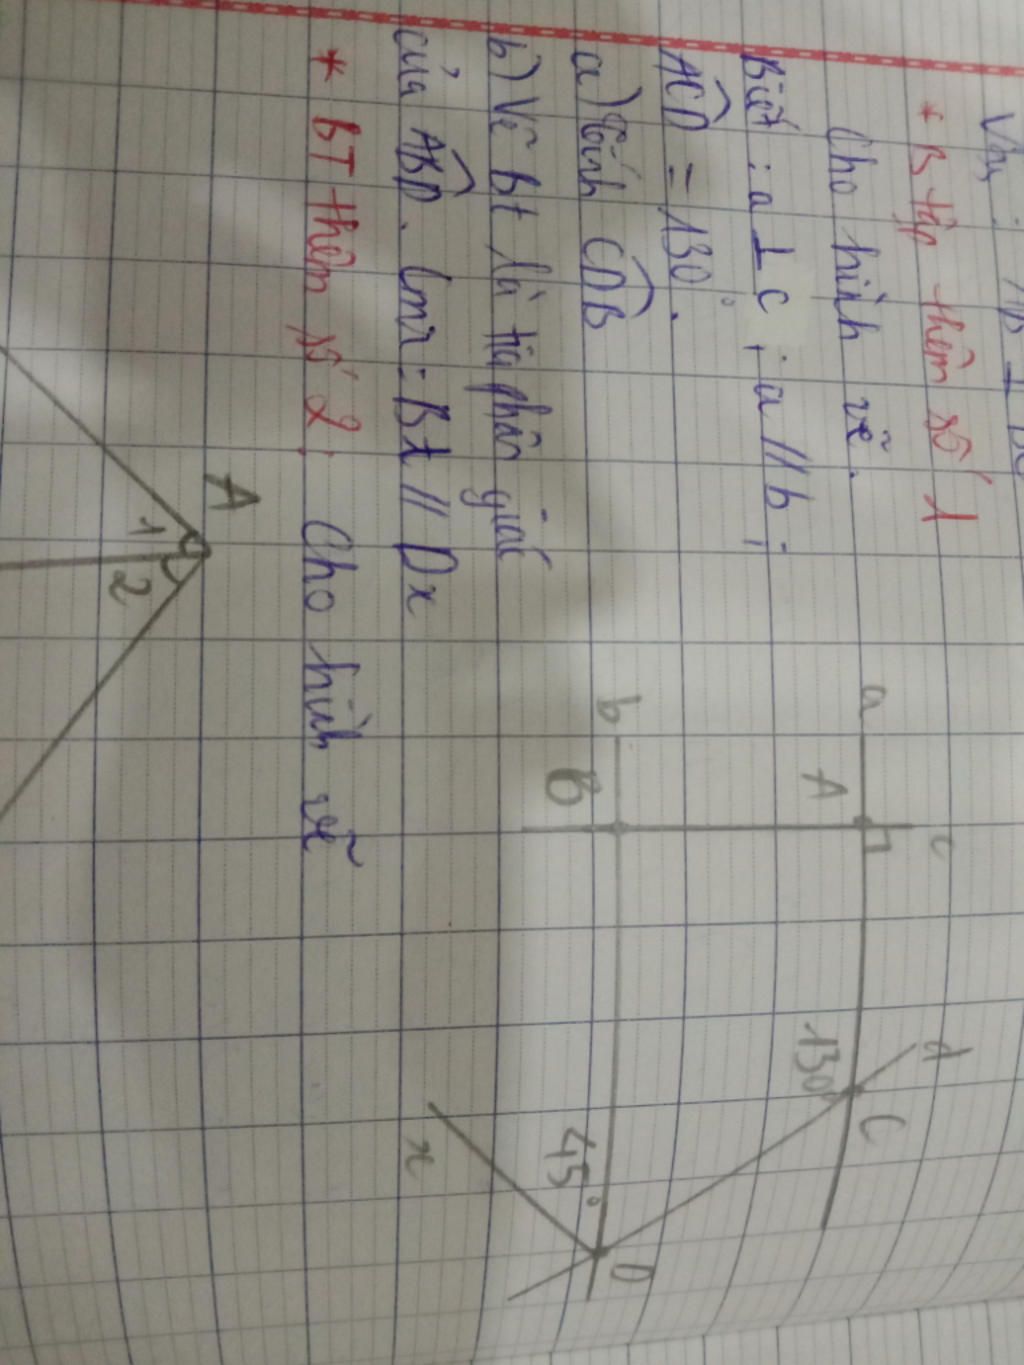 Vậy :
* B tập thêm số 1
Cho hình vẽ.
Biết : a ⊥ c ; a // b ;
ACD = 130°.
a) Tính CDB
b) Vẽ Bt là tia phân giác
của ABD. Cmr : Bt // Dx
* BT thêm số 2: Cho hình vẽ
a A c
130° C d
b B
45° D
x
A
1 2